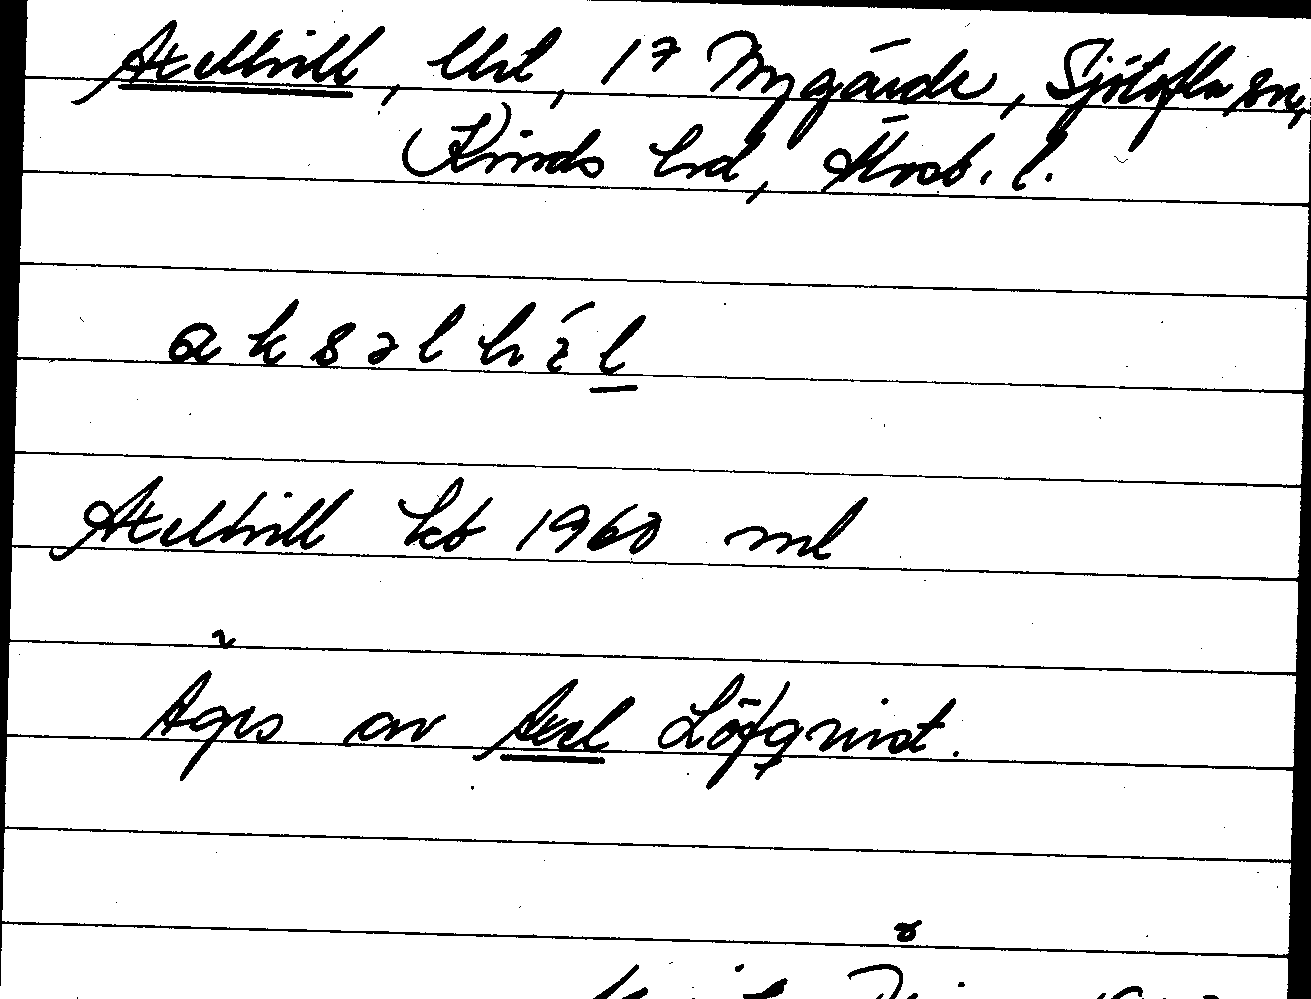 Axelhill, lht, 1⁷ Nygärde, Sjötofta sn,
Kinds hd, Älvsb. l.
a k s ə l h í l
Axelhill 1960 ml
Ägs av Axel Löfqvist.